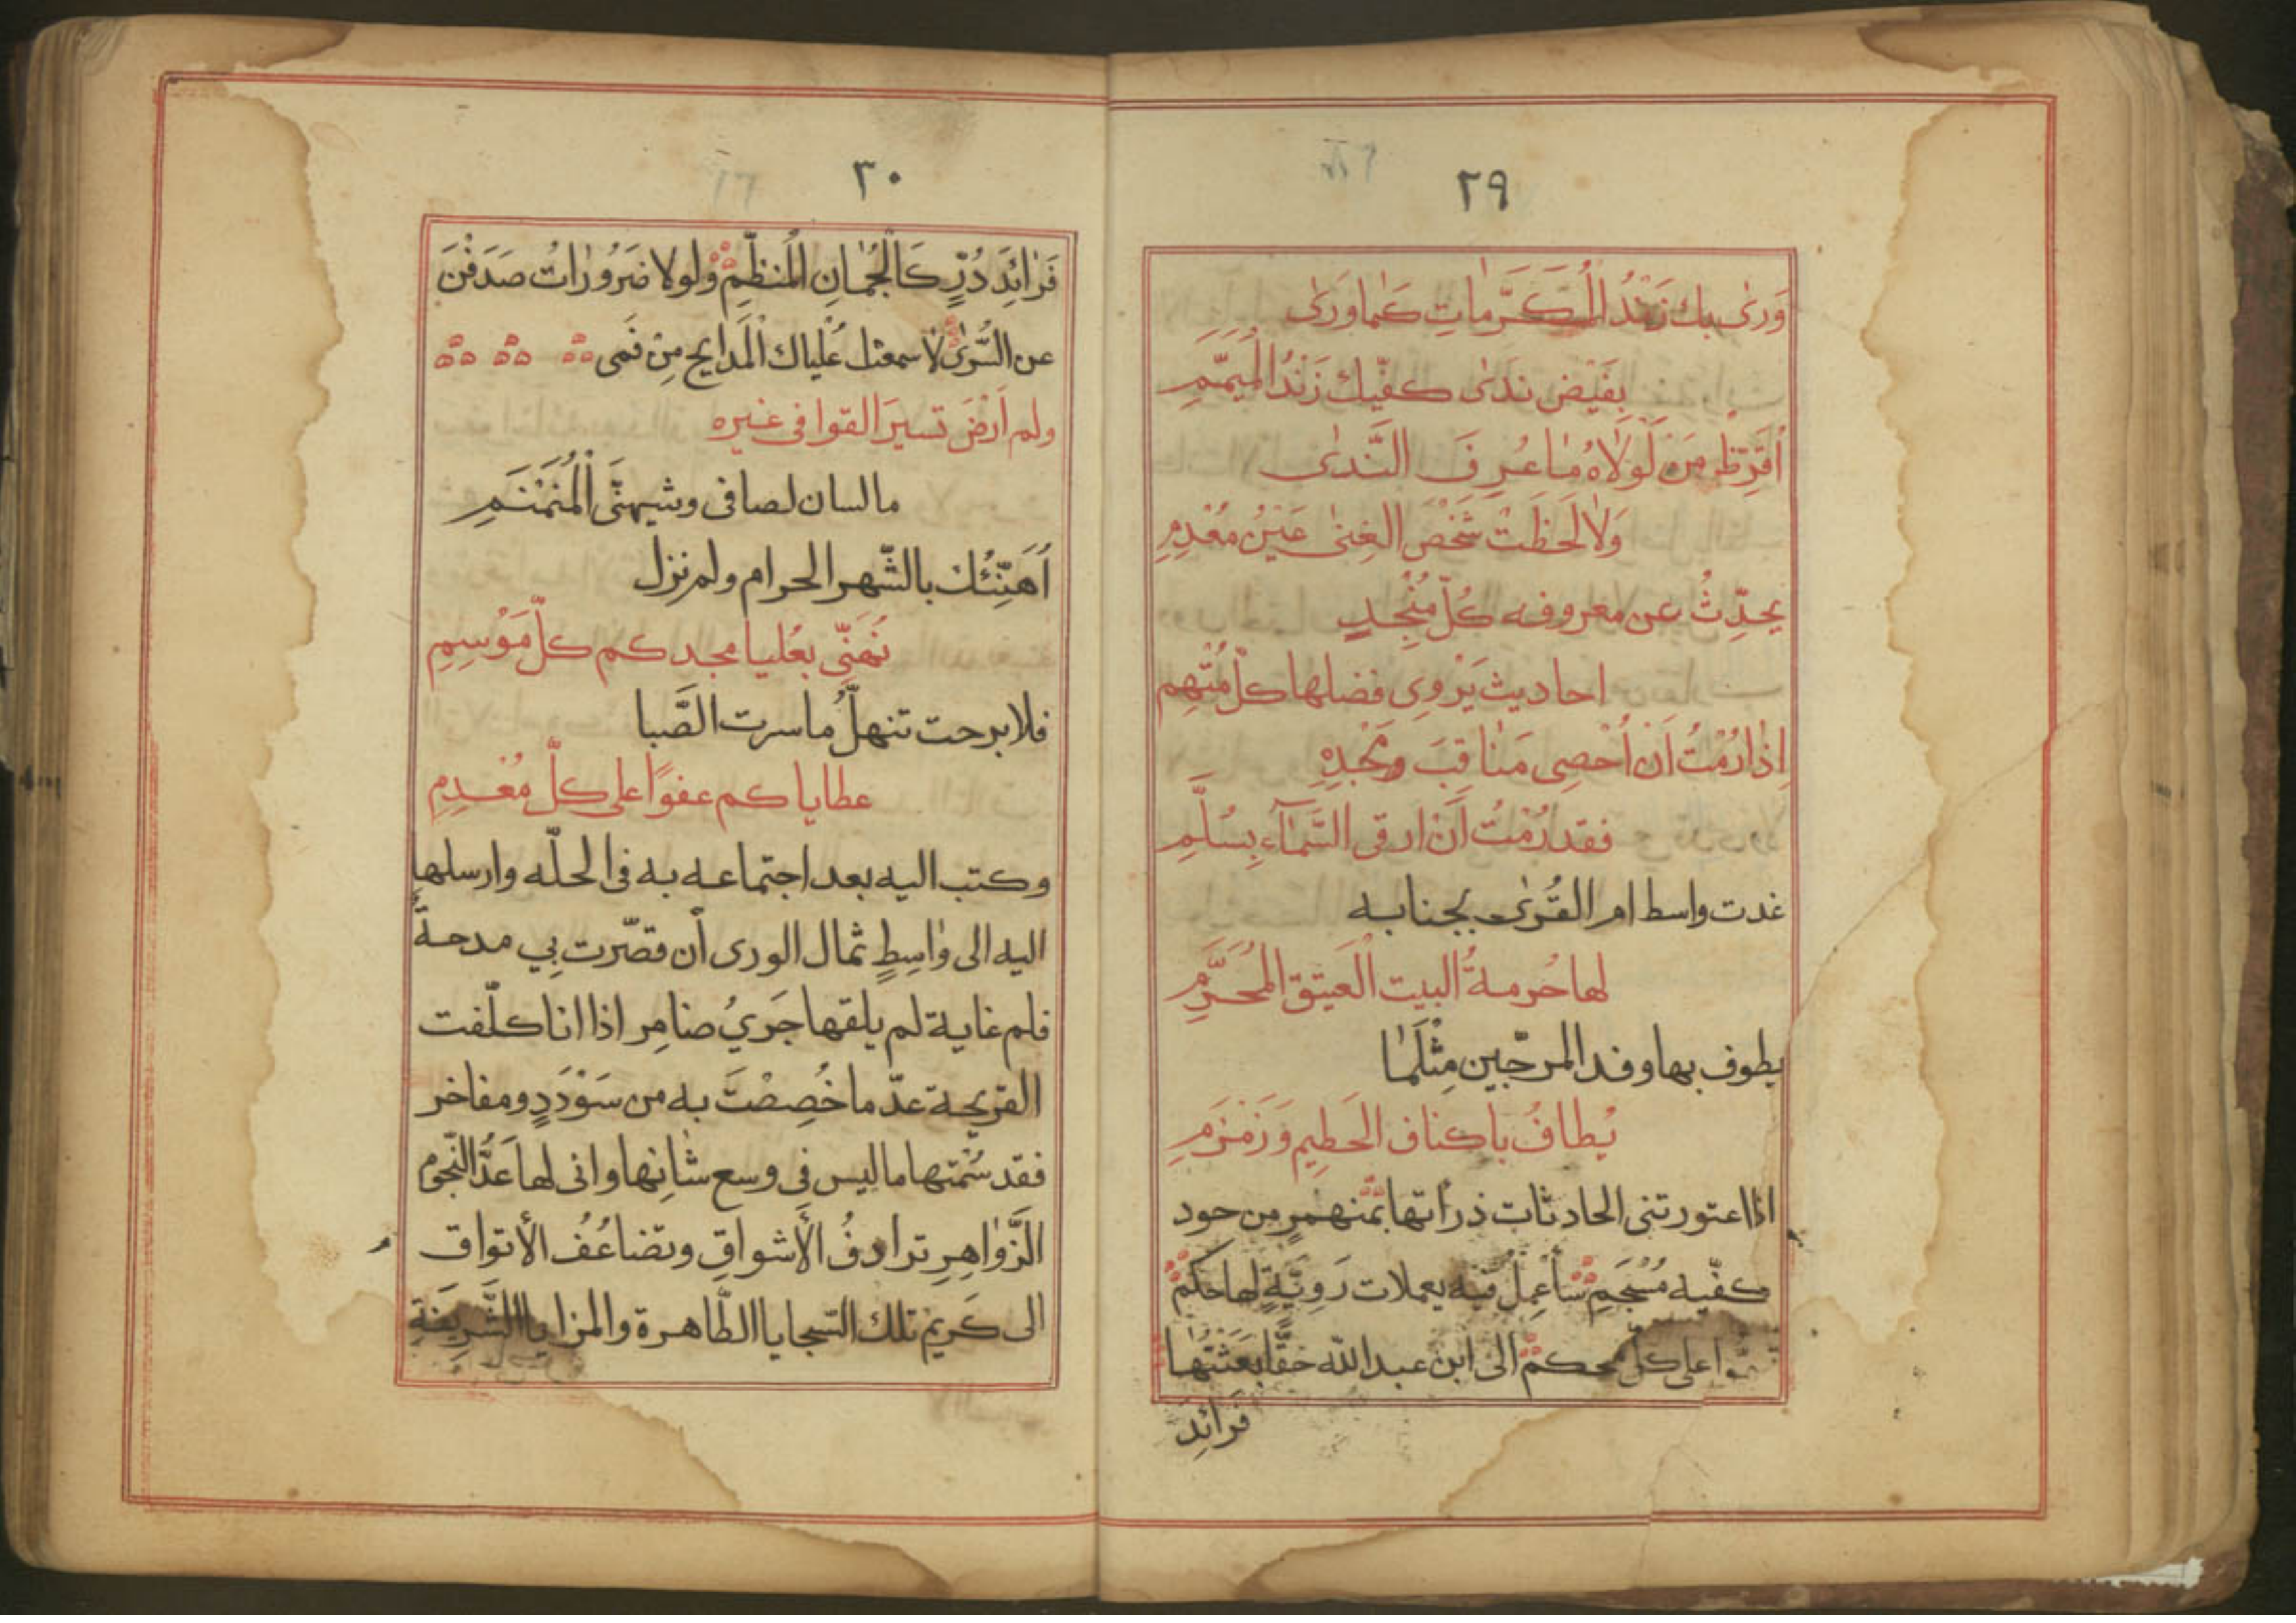 ٢٩
وَرىٰ بك زَنْدُ المُكَرَّماتِ كَما وَرىٰ
بِفَيْضِ ندىٰ كفّيك زَنْدُ المُيَمَّمِ
أُقَرِّظُ مَن لَولاهُ ما عُرِفَ النَّدىٰ
وَلا لَحَظَتْ شَخْصَ الغِنىٰ عَيْنُ مُعْدِمِ
يحدِّثُ عن معروفه كُلّ مُنْجِدٍ
احاديث يَرْوِى فضلها كلّ مُتْهِم
اِذا رُمْتُ اَنْ اُحْصِى مَناقِبَ مَجْدِهِ
فقد رُمْتُ اَنْ ارقى السَّمآءِ بِسُلَّمِ
غدت واسط ام القُرىٰ بجنابه
لها حُرمةُ البيت العَتيق المُحَرَّمِ
يطوف بها وفد المرجّين مِثْلَما
يُطافُ باكناف الحَطِيم وَزَمْزَمِ
اذا اعتورتنى الحادثات ذرأتها بمنهمرٍ من جود
كفّيه مُسْجَمِ سأعمِلُ فيه يعملات رَوِيّةٍ لها حكم
على كلّ محكم الى ابن عبد الله حقّا بَعَثتُها
فَرائِدَ
٣٠
فَرائِدَ دُرٍّ كَالجُمانِ المُنظَّمِ ولولا ضَرُوراتُ صَدَفْنَ
عن السُّرىٰ لاسمعتك عُلياك المَدايح مِن فَمى
ولم اَرْضَ تسييرَ القوافى غيره
مالسان لصافى وشيهنَّ المُنَمْنَمِ
اُهَنِّئُك بالشّهر الحرام ولم نزل
نُهَنِّى بعُليا مجدكم كلّ مَوْسِمِ
فلا برحت تنهلُّ ما سرت الصَّبا
عطاياكم عفوًا على كلّ مُعْدِمِ
وكتب اليه بعد اجتماعه به فى الحلّه وارسلها
اليه الى واسِطٍ ثمال الورى أن قصّرت بِي مدحةٌ
فلم غاية لم يلقها جَريُ ضامِر اذا انا كلّفت
القريحة عدّ ما خُصِصْتَ به من سَوْدَدٍ ومفاخر
فقد سُمْتها ما ليس فى وسع شانِها وانى لها عَدُّ النّجوم
الزَّواهِرِ ترادفُ الأشواقِ وتضاعُفُ الأتواق
الى كَريم تلك السّجايا الطّاهرة والمزايا الشَّرِيفَةِ